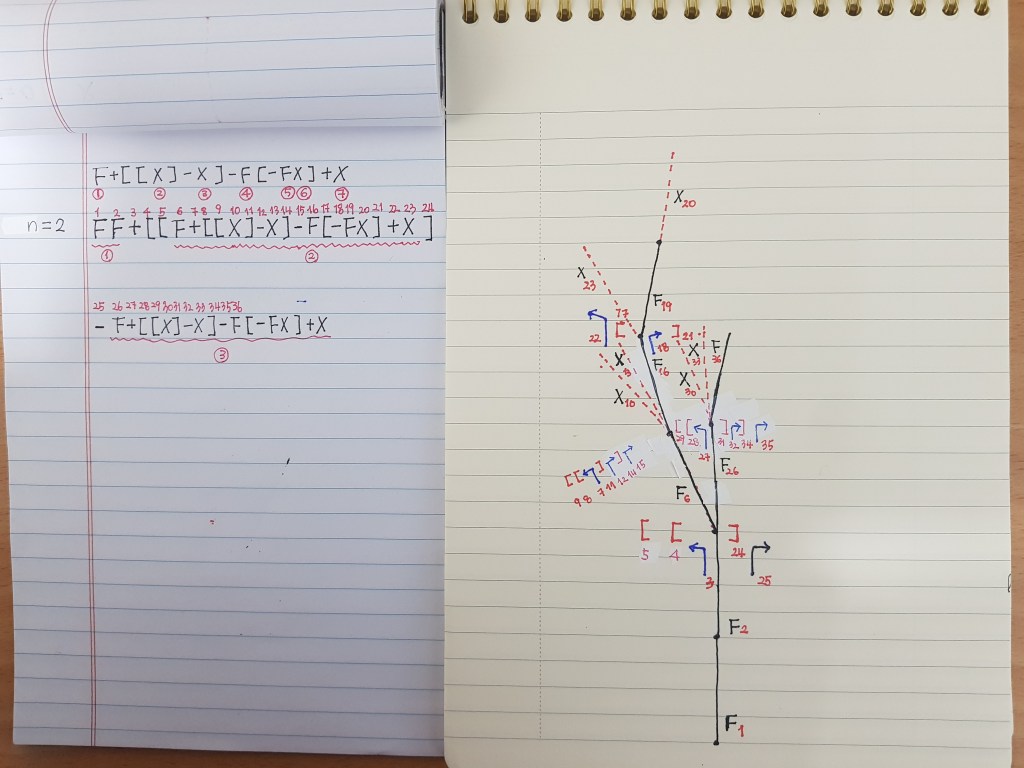 F+[[X]-X]-F[-FX]+X
① ② ③ ④ ⑤⑥ ⑦
1 2 3 4 5 6 7 8 9 10 11 12 13 14 15 16 17 18 19 20 21 22 23 24
n=2 FF+[[F+[[X]-X]-F[-FX]+X]
① ②
25 26 27 28 29 30 31 32 33 34 35 36
-F+[[X]-X]-F[-FX]+X
③
X20
X
23
F19
17
[ ] 21
22 18
F16
X
X10
X
33
F
36
X
30
[[ ] ]
29 28 27 31 32 34 35
F26
[[ ] ]
9 8 7 11 12 14 15
F6
[ [ ]
5 4 24
3 25
F2
F1